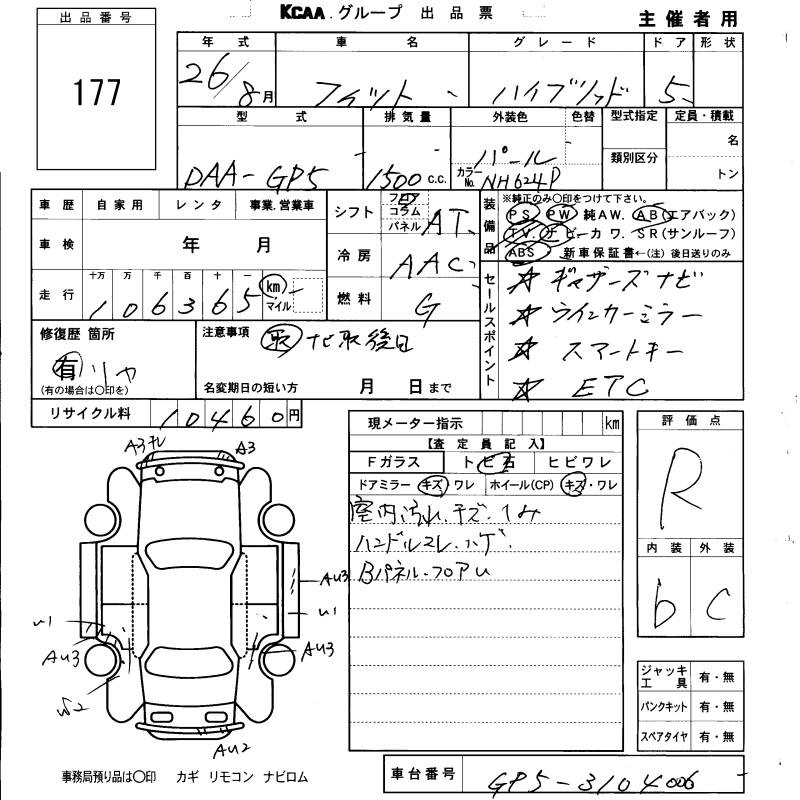 KCAA.グループ 出品票
主催者用
出品番号
177
年式 車名 グレード ドア 形状
26/8月 フィット ハイブリッド 5
型式 排気量 外装色 色替 型式指定 定員・積載
DAA-GP5 1500c.c. パール
カラーNo. NH624P
類別区分
名
トン
車歴 自家用 レンタ 事業.営業車
車検 年 月
走行 十万 万 千 百 十 一
106365 km マイル
シフト フロア コラム パネル AT
冷房 AAC
燃料 G
装備品
※純正のみ○印をつけて下さい。
PS PW 純AW. AB(エアバック)
TV. ナビーカワ. SR(サンルーフ)
ABS 新車保証書←(注)後日送りのみ
セールスポイント
☆ ギャザーズナビ
☆ ウインカーミラー
☆ スマートキー
☆ ETC
修復歴 箇所
有 リヤ
(有の場合は○印を)
注意事項
取 ナビ取後日
名変期日の短い方 月 日まで
リサイクル料 10460円
現メーター指示 km
【査定員記入】
Fガラス トビ石 ヒビワレ
ドアミラー キズ・ワレ ホイール(CP) キズ・ワレ
室内汚れ.キズ.イみ
ハンドルスレ.ハゲ.
Bパネル.フロアU
評価点
R
内装 外装
b C
ジャッキ工具 有・無
パンクキット 有・無
スペアタイヤ 有・無
A3 A3
AU3
U1 U1
AU3 AU3
S2
AU2
事務局預り品は○印 カギ リモコン ナビロム
車台番号 GP5-3104006